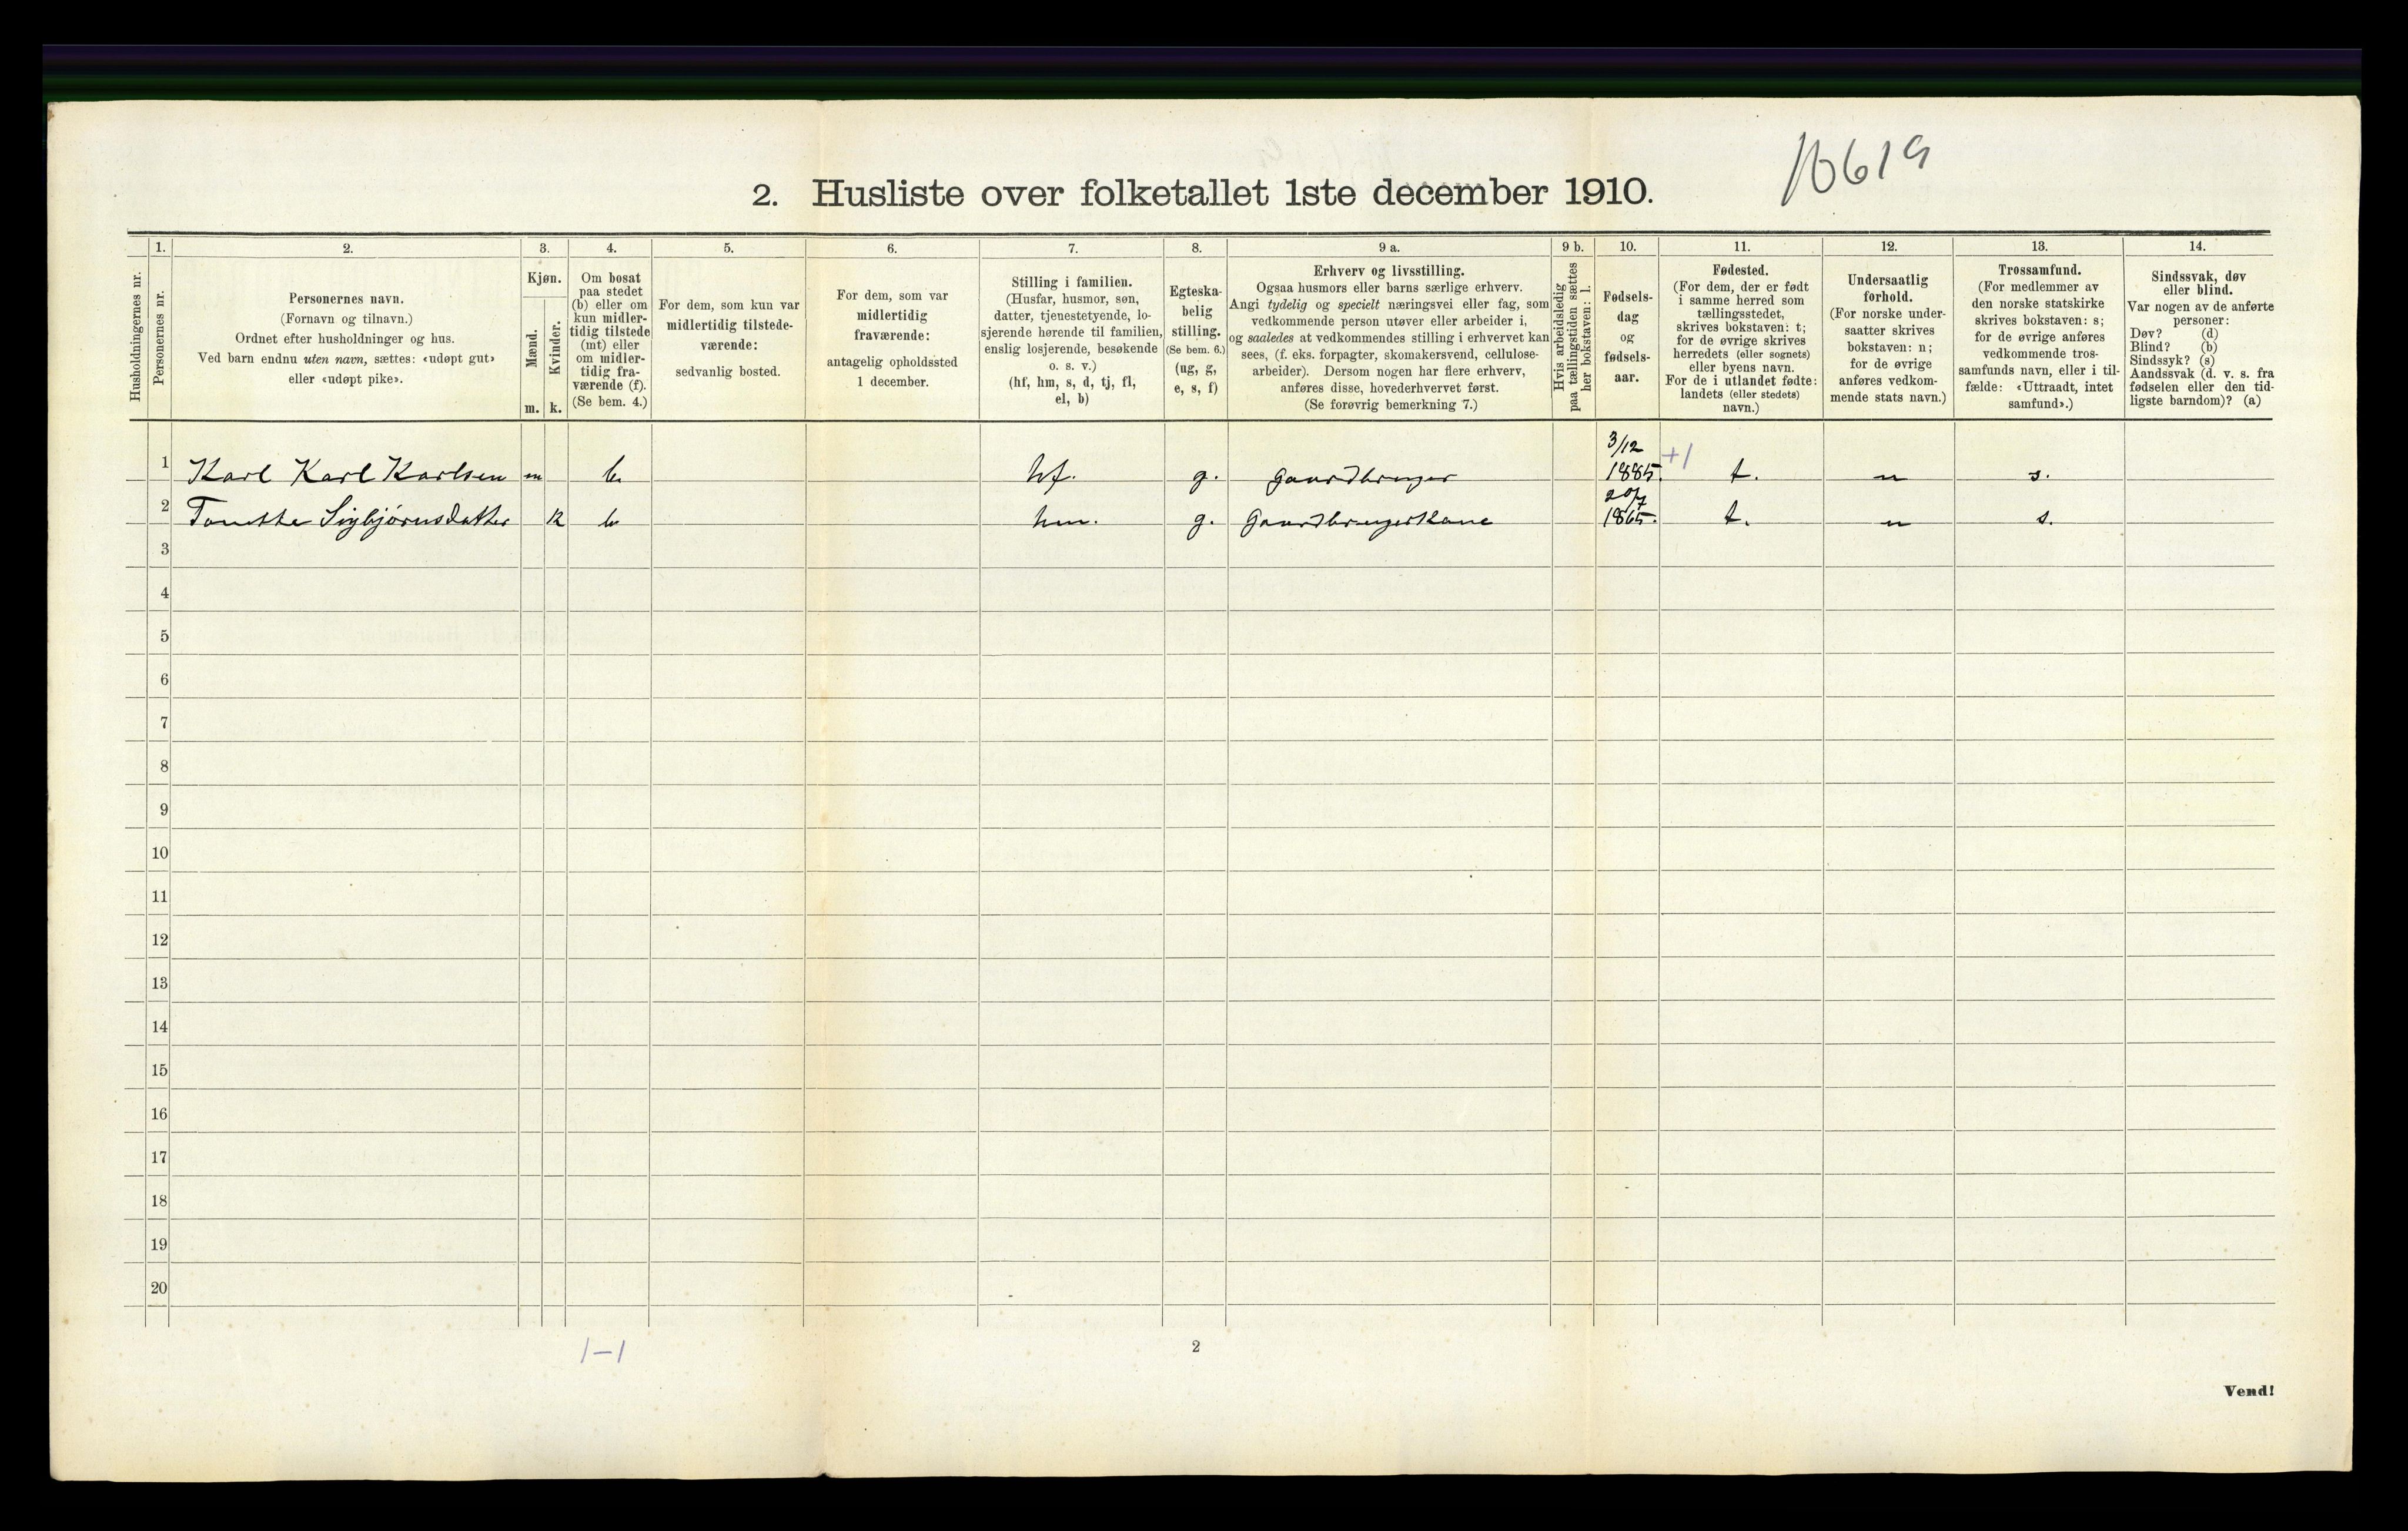 10619
2. Husliste over folketallet 1ste december 1910.
Husholdningernes nr.
1.
Personernes nr.
2.
Personernes navn.
(Fornavn og tilnavn.)
Ordnet efter husholdninger og hus.
Ved barn endnu uten navn, sættes: «udøpt gut»
eller «udøpt pike».
3.
Kjøn.
Mænd.
m.
Kvinder.
k.
4.
Om bosat
paa stedet
(b) eller om
kun midler-
tidig tilstede
(mt) eller
om midler-
tidig fra-
værende (f).
(Se bem. 4.)
5.
For dem, som kun var
midlertidig tilstede-
værende:
sedvanlig bosted.
6.
For dem, som var
midlertidig
fraværende:
antagelig opholdssted
1 december.
7.
Stilling i familien.
(Husfar, husmor, søn,
datter, tjenestetyende, lo-
sjerende hørende til familien,
enslig losjerende, besøkende
o. s. v.)
(hf, hm, s, d, tj, fl,
el, b)
8.
Egteska-
belig
stilling.
(Se bem. 6.)
(ug, g,
e, s, f)
9 a.
Erhverv og livsstilling.
Ogsaa husmors eller barns særlige erhverv.
Angi tydelig og specielt næringsvei eller fag, som
vedkommende person utøver eller arbeider i,
og saaledes at vedkommendes stilling i erhvervet kan
sees, (f. eks. forpagter, skomakersvend, cellulose-
arbeider). Dersom nogen har flere erhverv,
anføres disse, hovederhvervet først.
(Se forøvrig bemerkning 7.)
9 b.
Hvis arbeidsledig
paa tællingstiden sættes
her bokstaven: l.
10.
Fødsels-
dag
og
fødsels-
aar.
11.
Fødested.
(For dem, der er født
i samme herred som
tællingsstedet,
skrives bokstaven: t;
for de øvrige skrives
herredets (eller sognets)
eller byens navn.
For de i utlandet fødte:
landets (eller stedets)
navn.)
12.
Undersaatlig
forhold.
(For norske under-
saatter skrives
bokstaven: n;
for de øvrige
anføres vedkom-
mende stats navn.)
13.
Trossamfund.
(For medlemmer av
den norske statskirke
skrives bokstaven: s;
for de øvrige anføres
vedkommende tros-
samfunds navn, eller i til-
fælde: «Uttraadt, intet
samfund».)
14.
Sindssvak, døv
eller blind.
Var nogen av de anførte
personer:
Døv? (d)
Blind? (b)
Sindssyk? (s)
Aandssvak (d. v. s. fra
fødselen eller den tid-
ligste barndom)? (a)
1 Karl Karl Karlsen m b. hf. g. gaardbruger 3/12 1885. +1 t. n s.
2 Tonette Sigbjørnsdatter k b hm. g. Gaardbrugerkone 20/7 1865. t. n s.
3
4
5
6
7
8
9
10
11
12
13
14
15
16
17
18
19
20
1-1
2
Vend!